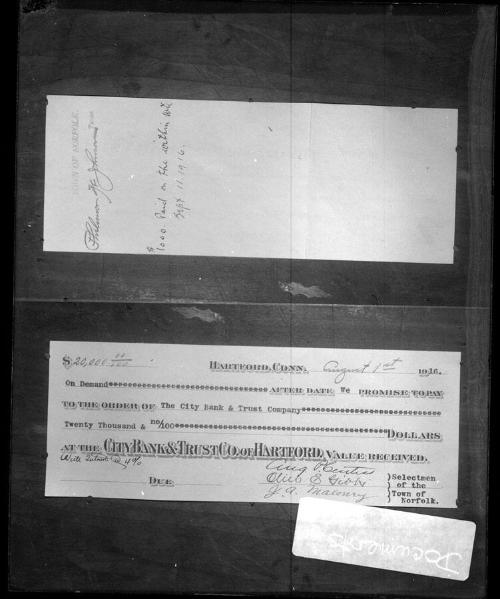 TOWN OF NORFOLK.
$
1000. Paid on the within
Sept 11. 1916.
$ 20,000 00/100 HARTFORD, CONN. August 1st 1916.
On Demand AFTER DATE We PROMISE TO PAY
TO THE ORDER OF The City Bank & Trust Company
Twenty Thousand & no/100 DOLLARS
AT THE CITY BANK & TRUST CO. OF HARTFORD, VALUE RECEIVED.
With Interest at 4%
DUE
Selectmen
of the
Town of
Norfolk.
Documents